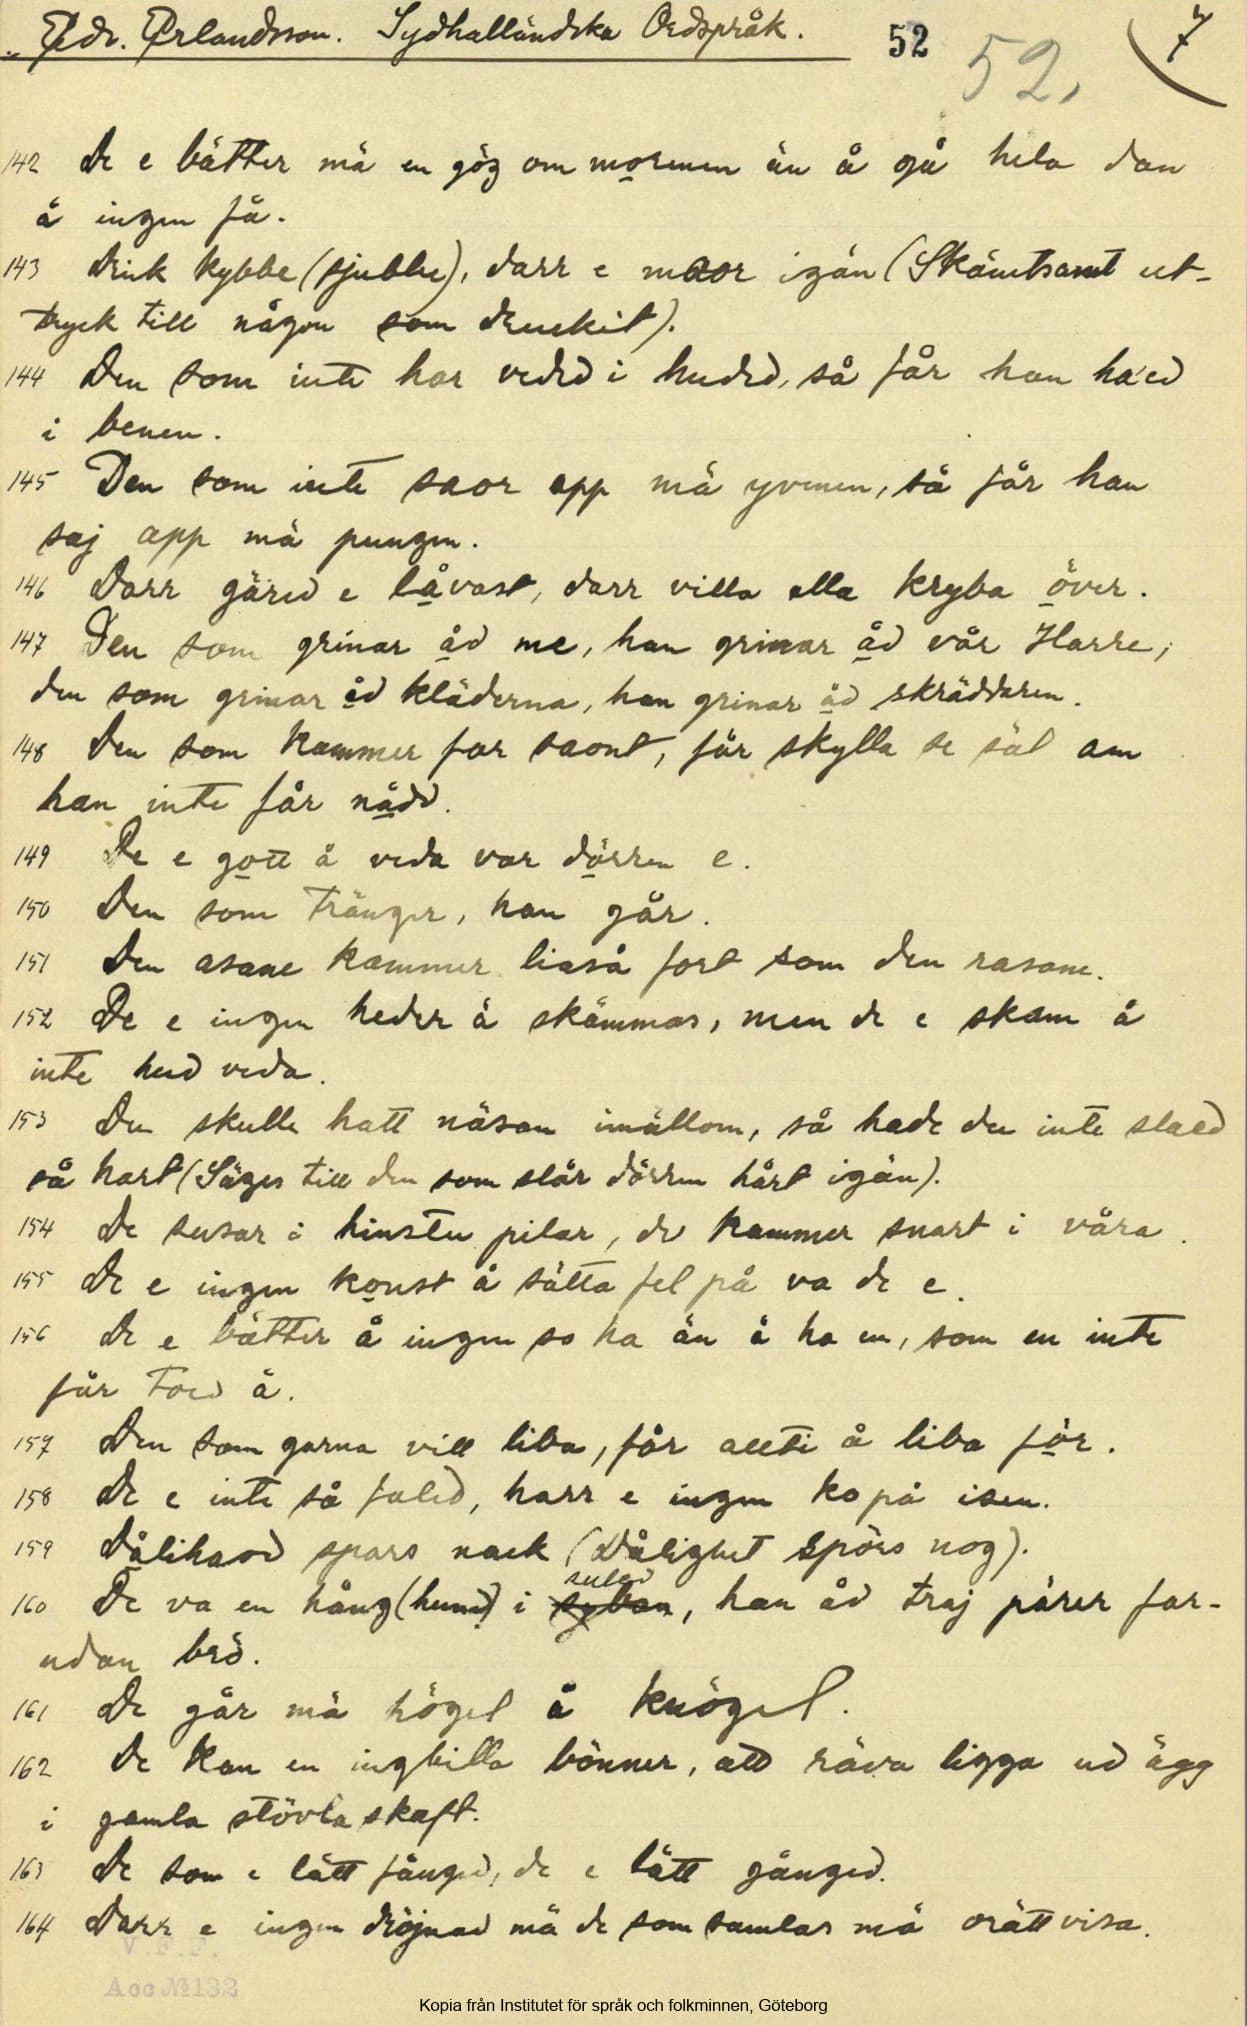 Edv. Erlandsson. Sydhalländska Ordspråk. 52 52, 7
142 De e bätter mä en göz om morenen än å gå hela dan
å ingen få.
143 Drick kybbe (sjubbe), darr e maor igän (Skämtsamt ut-
tryck till någon som druckit).
144 Den som inte har veded i huded, så får han ha'ed
i benen.
145 Den som inte saor opp mä yvenen, så får han
saj opp mä pungen.
146 Darr gäred e låvast, darr villa alla kryba över.
147 Den som grinar åd me, han grinar åd vår Harre,
den som grinar åd kläderna, han grinar åd skräddaren.
148 Den som kammer far saont, får skylla se säl am
han inte får nådd.
149 De e gott å veda var dörren e.
150 Den som tränger, han går.
151 Den asane kammer liaså fort som den rasane.
152 De e ingen heder å skämmas, men de e skam å
inte hud veda.
153 Du skulle hatt näsan imällom, så hade du inte slaed
så hart (Säges till den som slår dörren hårt igän).
154 De susar i hinsten pilar, de kammer snart i våra.
155 De e ingen konst å sätta fel på va de e.
156 De e bätter å ingen so ha än å ha en, som en inte
får toed å.
157 Den som garna vill liba, får allti å liba för.
158 De e inte så faled, harr e ingen ko på isen.
159 Dålihaod spars nack (Dålighet spörs nog).
160 De va en hång (hund) i suled, han åd traj pärer far-
udan brö.
161 De går mä högel å knögel.
162 De kan en ingbilla bönner, att räva ligga ud ägg
i gamla stövlaskaft.
163 De som e lätt fånged, de e lätt gånged.
164 Darr e ingen dröjnad mä de som samlas mä orättvisa.
V.F.F.
Acc № 132
Kopia från Institutet för språk och folkminnen, Göteborg